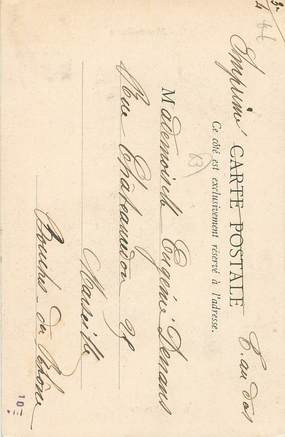 Imprimé
CARTE POSTALE
Ce côté est exclusivement réservé à l'adresse.
T. au dos
(13)
Mademoiselle Eugénie Denans
Rue Châteauredon 25
Marseille
Bouches-du-Rhône